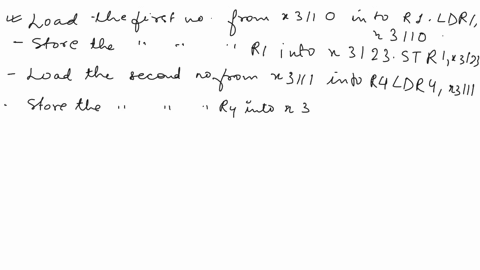 * Load the first no. from x3110 into R1. LDR1,
x3110.
- Store the " " " R1 into x3123. STR1, x3123
- Load the second no. from x3111 into R4 LDR4, x3111
- Store the " " " R4 into x3